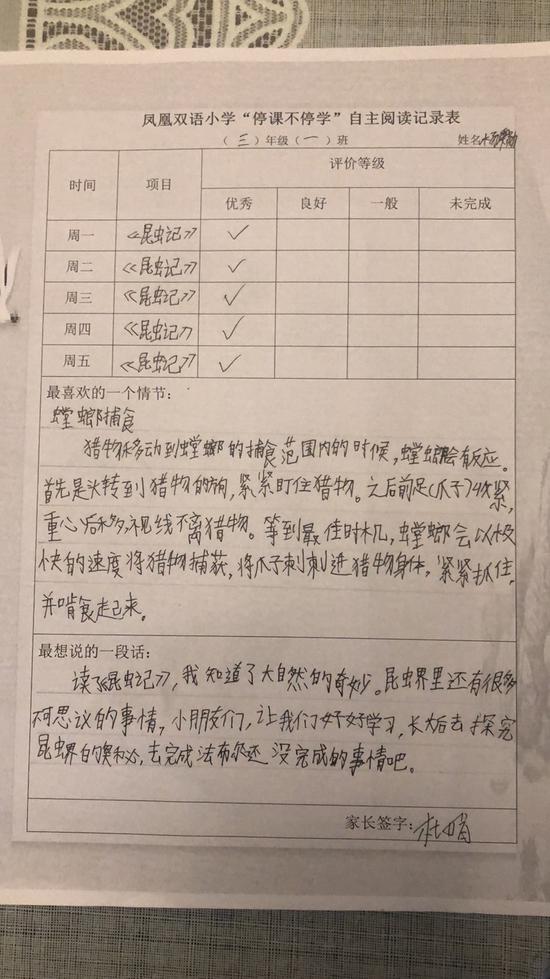 凤凰双语小学“停课不停学”自主阅读记录表
（三）年级（一）班 姓名
时间 项目 评价等级
优秀 良好 一般 未完成
周一 《昆虫记》 ✓
周二 《昆虫记》 ✓
周三 《昆虫记》 ✓
周四 《昆虫记》 ✓
周五 《昆虫记》 ✓
最喜欢的一个情节：
螳螂捕食
猎物移动到螳螂的捕食范围内的时候，螳螂会有反应。
首先是头转到猎物的方向，紧紧盯住猎物。之后前足（爪子）收紧，
重心后移，视线不离猎物。等到最佳时机，螳螂会以极
快的速度将猎物捕获，将爪子刺刺进猎物身体，紧紧抓住，
并啃食起来。
最想说的一段话：
读《昆虫记》，我知道了大自然的奇妙。昆虫界里还有很多
不可思议的事情，小朋友们，让我们好好学习，长大后去探究
昆虫界的奥秘，去完成法布尔还没完成的事情吧。
家长签字：